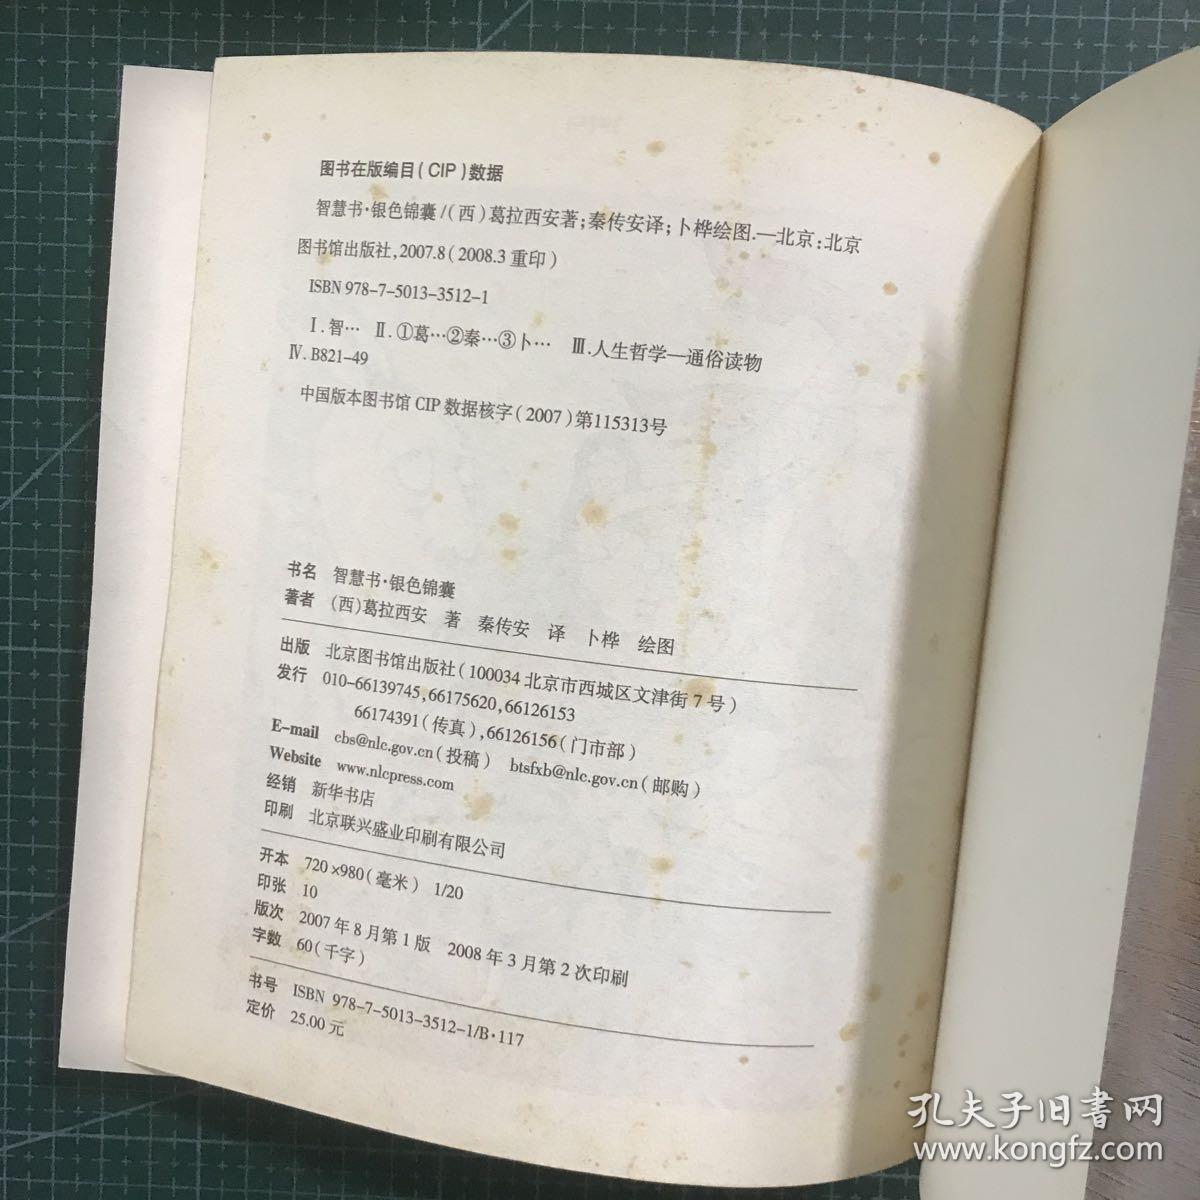 图书在版编目(CIP)数据
智慧书·银色锦囊/(西)葛拉西安著;秦传安译;卜桦绘图.—北京:北京
图书馆出版社,2007.8(2008.3重印)
ISBN 978-7-5013-3512-1
Ⅰ.智… Ⅱ.①葛…②秦…③卜… Ⅲ.人生哲学—通俗读物
Ⅳ.B821-49
中国版本图书馆CIP数据核字(2007)第115313号
书名 智慧书·银色锦囊
著者 (西)葛拉西安 著 秦传安 译 卜桦 绘图
出版 北京图书馆出版社(100034 北京市西城区文津街7号)
发行 010-66139745,66175620,66126153
66174391(传真),66126156(门市部)
E-mail cbs@nlc.gov.cn(投稿) btsfxb@nlc.gov.cn(邮购)
Website www.nlcpress.com
经销 新华书店
印刷 北京联兴盛业印刷有限公司
开本 720×980(毫米) 1/20
印张 10
版次 2007年8月第1版 2008年3月第2次印刷
字数 60(千字)
书号 ISBN 978-7-5013-3512-1/B·117
定价 25.00元
孔夫子旧书网
www.kongfz.com